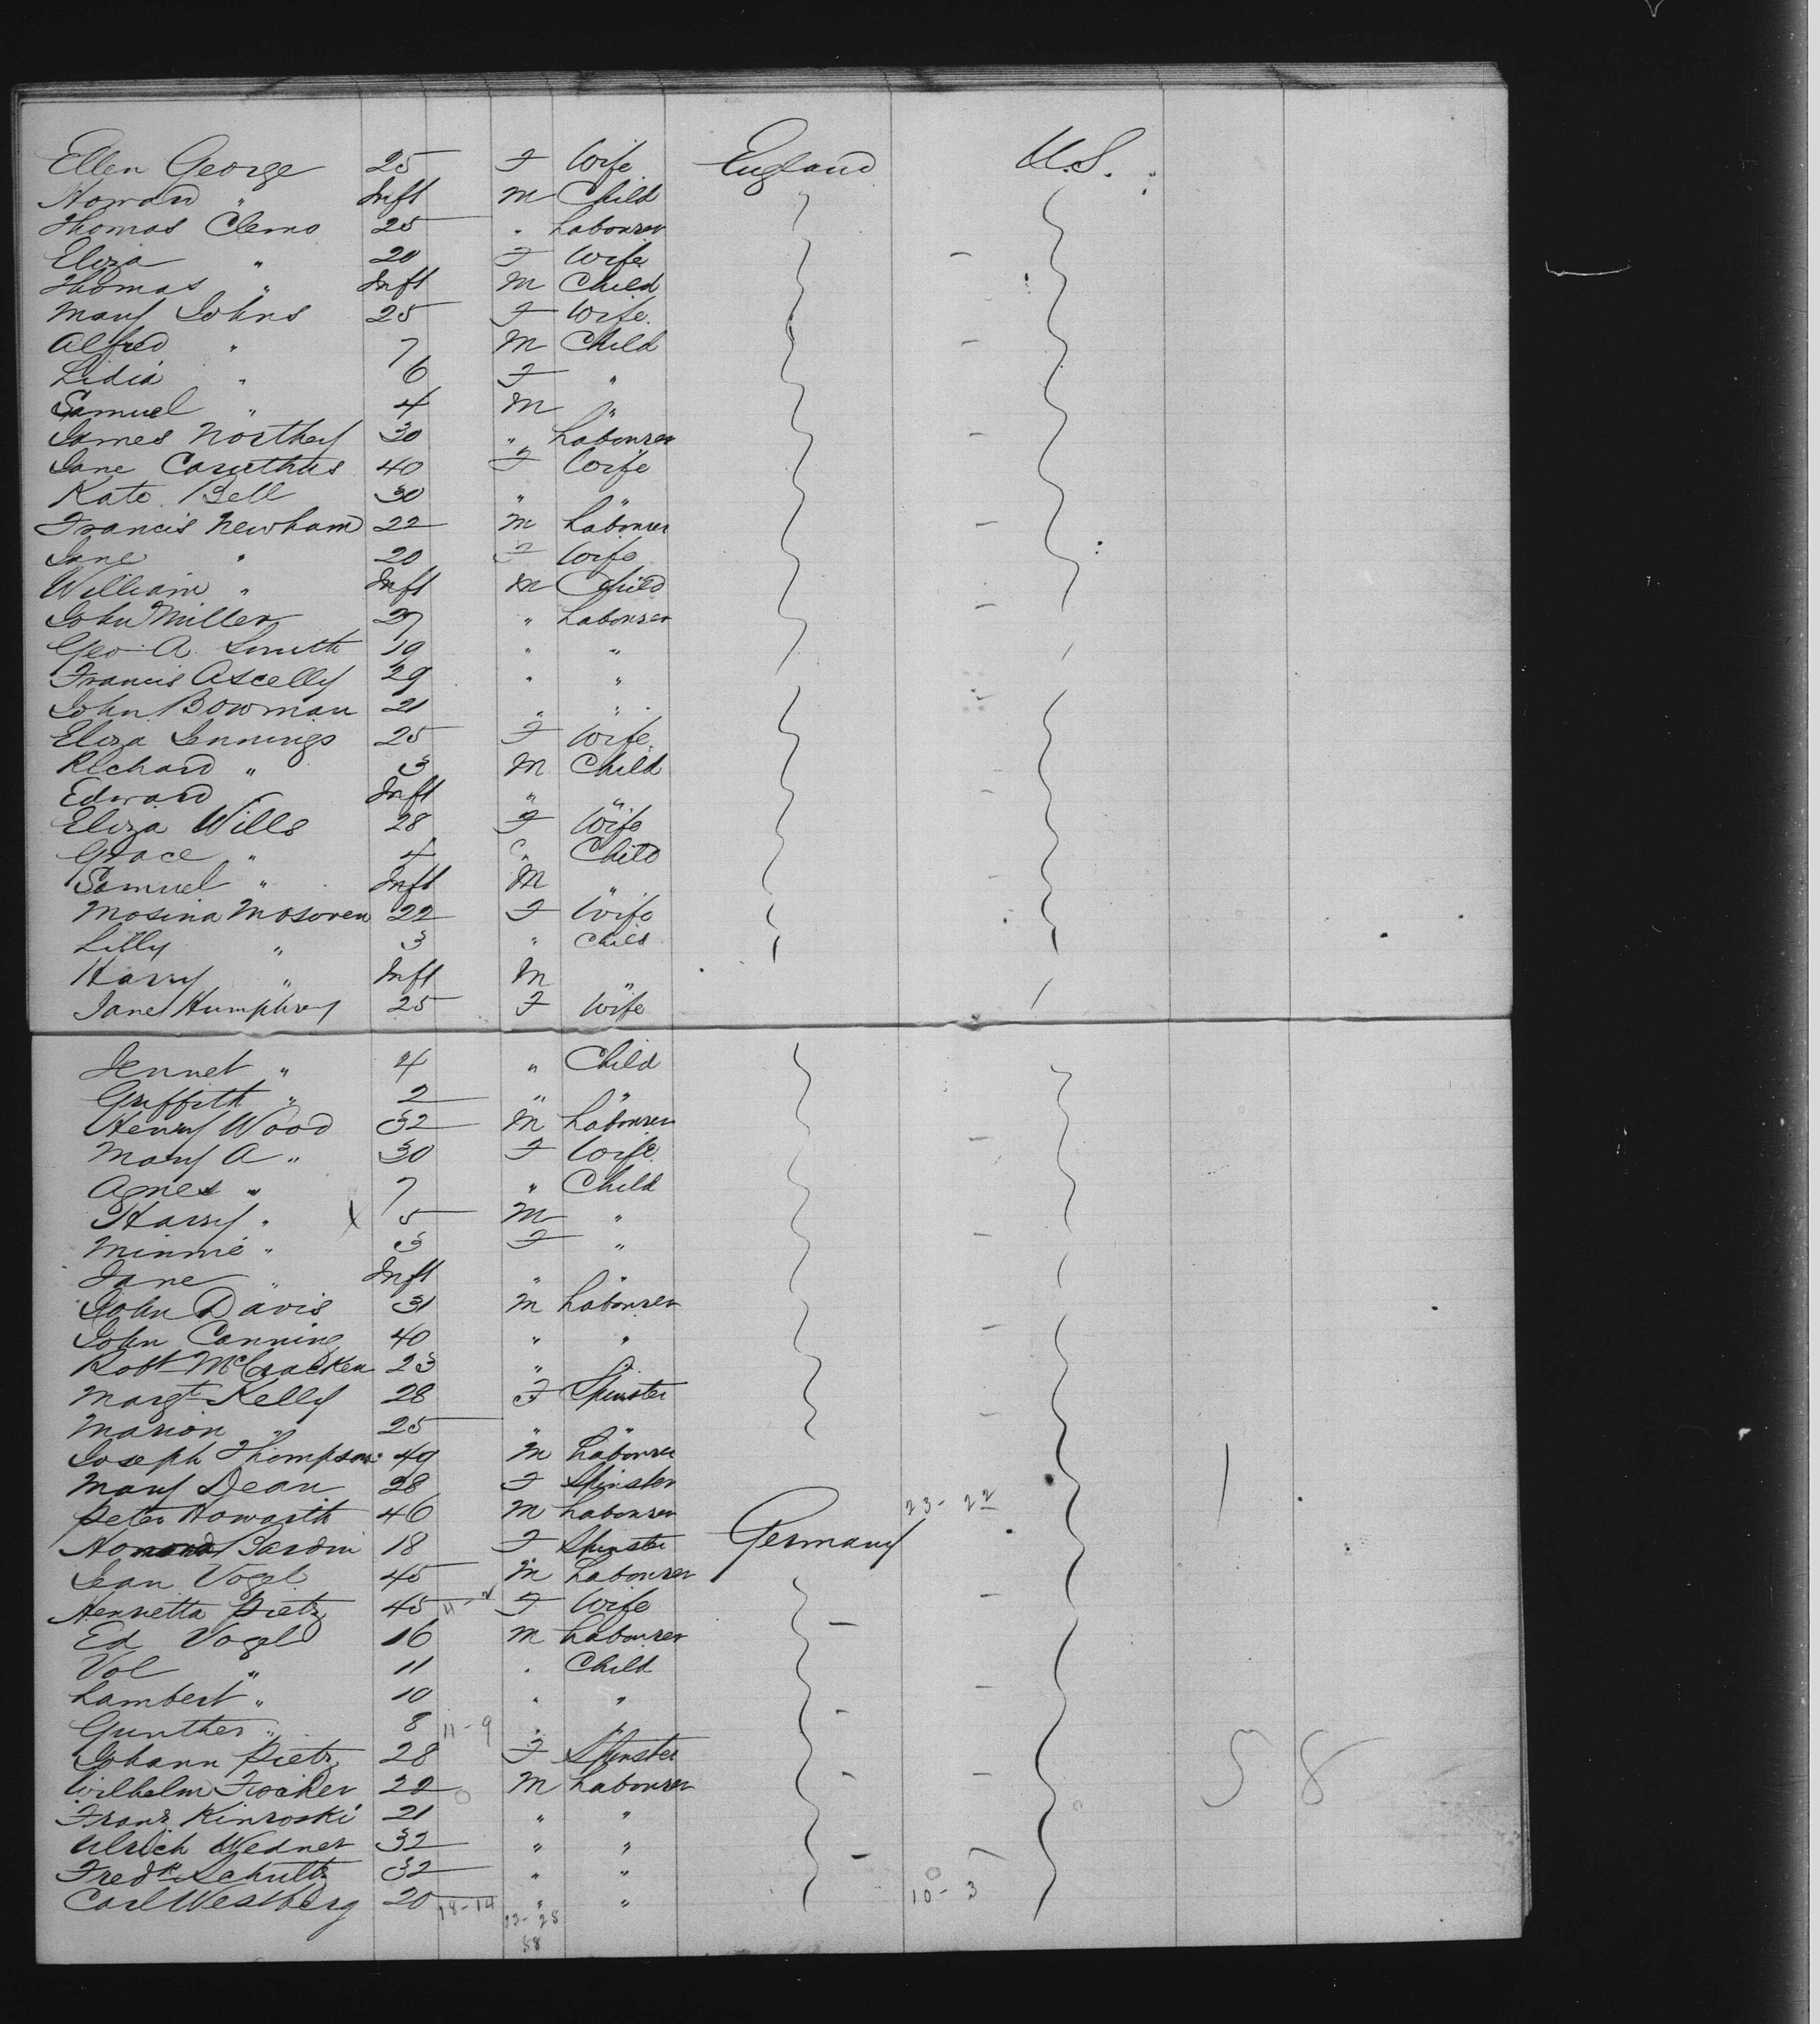 Ellen George 25 F Wife England U.S.
Howard " Inft M Child
Thomas Clemo 25 " Labourer
Eliza " 20 F Wife
Thomas " Inft M Child
Mary Johns 25 F Wife
Alfred " 7 M Child
Lidia " 6 F "
Samuel " 4 M "
James Northey 30 " Labourer
Jane Caruthus 40 F Wife
Kate Bell 30 " "
Francis Newham 22 M Labourer
Jane " 20 F Wife
William " Inft M Child
John Miller 27 " Labourer
Geo A. Smith 19 " "
Francis Ascelly 29 " "
John Bowman 21 " "
Eliza Jennings 25 F Wife
Richard " 3 M Child
Edward " Inft " "
Eliza Wills 28 F Wife
Grace " 4 " Child
Samuel " Inft M "
Mosina Mosoven 22 F Wife
Lilly " 3 " Child
Harry " Inft M "
Jane Humphrey 25 F Wife
Jennet " 4 " Child
Griffith " 2 " "
Henry Wood 32 M Labourer
Mary A " 30 F Wife
Agnes " 7 " Child
Harry " X 5 M "
Minnie " 3 F "
Jane " Inft " "
John Davis 31 M Labourer
John Canning 40 " "
Robt McCracken 23 " "
Margt Kelly 28 F Spinster
Marion " 25 " "
Joseph Thompson 49 M Labourer
Mary Dean 28 F Spinster
Peter Howarth 46 M Labourer 23-22
Sardin 18 F Spinster Germany
Jean Vogel 45 M Labourer
Henrietta Pietz 45 F Wife
Ed Vogel 16 M Labourer
Vol " 11 " Child
Lambert " 10 " "
Gunther " 8 11-9 " "
Johann Pietz 28 F Spinster 58
Wilhelm 22 M Labourer
Franz Kinroski 21 " "
Ulrich Wedner 32 " "
Fredk Schultz 32 " "
Carl Westberg 20 18-14 " " 10-3
58